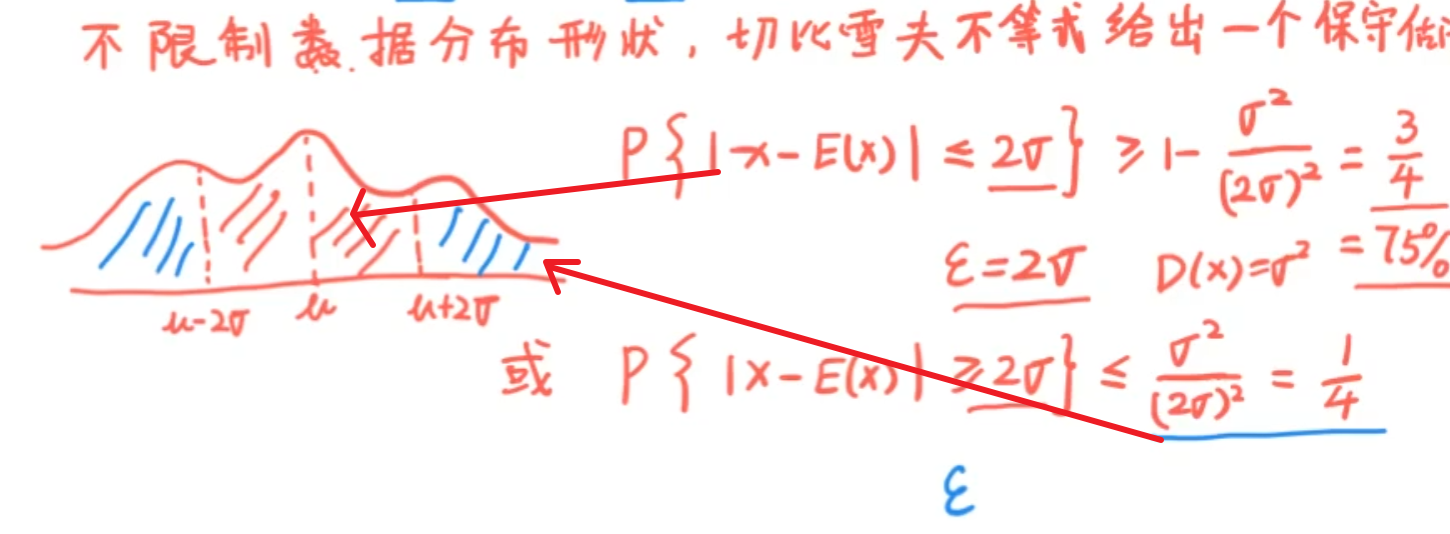 不限制数据分布形状，切比雪夫不等式给出一个保守估
P{|x-E(x)| ≤ 2σ} ≥ 1- σ²/(2σ)² = 3/4
ε=2σ D(x)=σ² =75%
μ-2σ μ μ+2σ
或 P{|x-E(x)| ≥2σ} ≤ σ²/(2σ)² = 1/4
ε